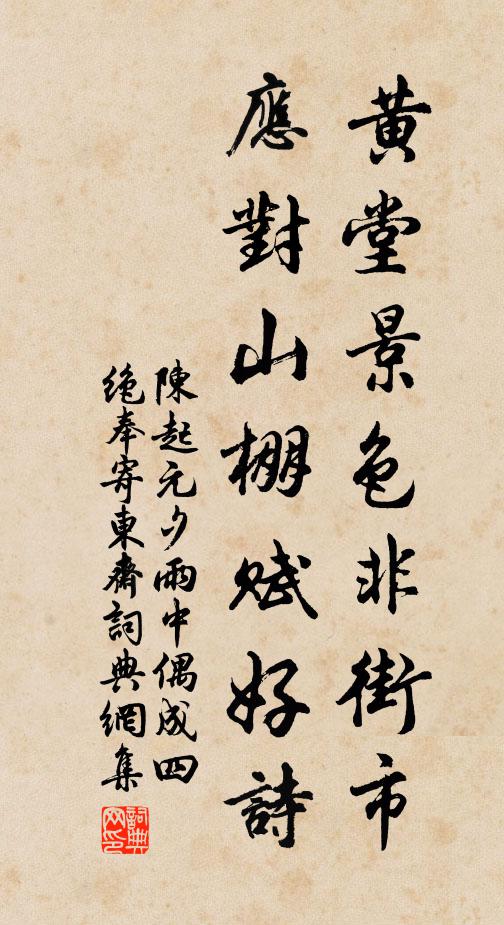 黃堂景色非街市
應對山棚賦好詩
陳起元夕雨中偶成四
絶奉寄東齋詞典網集
詞典网印